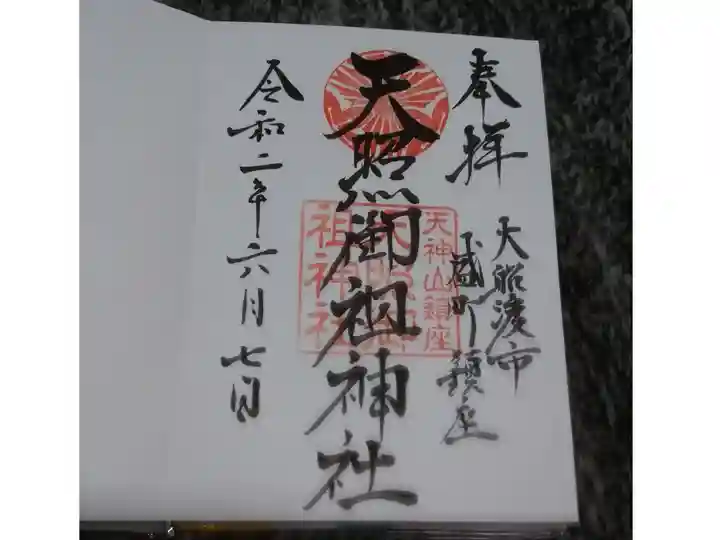 奉拝
大船渡市
盛町鎮座
天照御祖神社
天神山鎮座
天照御
祖神社
令和二年六月七日